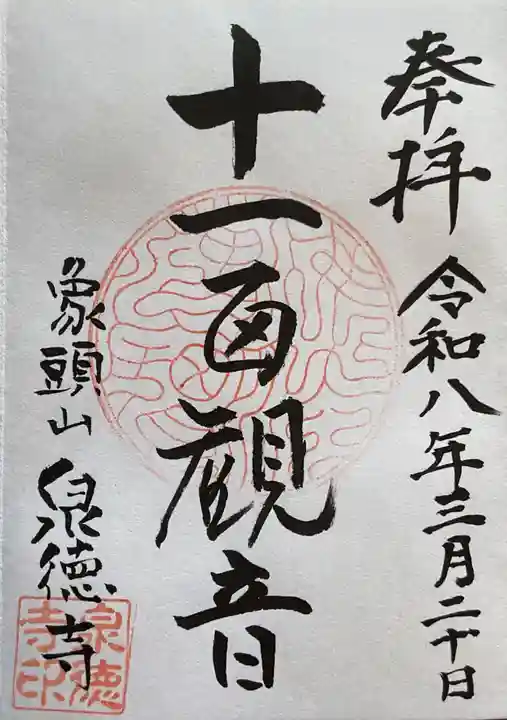 奉拝
令和八年三月二十日
十一面観音
象頭山 泉徳寺
泉徳
寺印